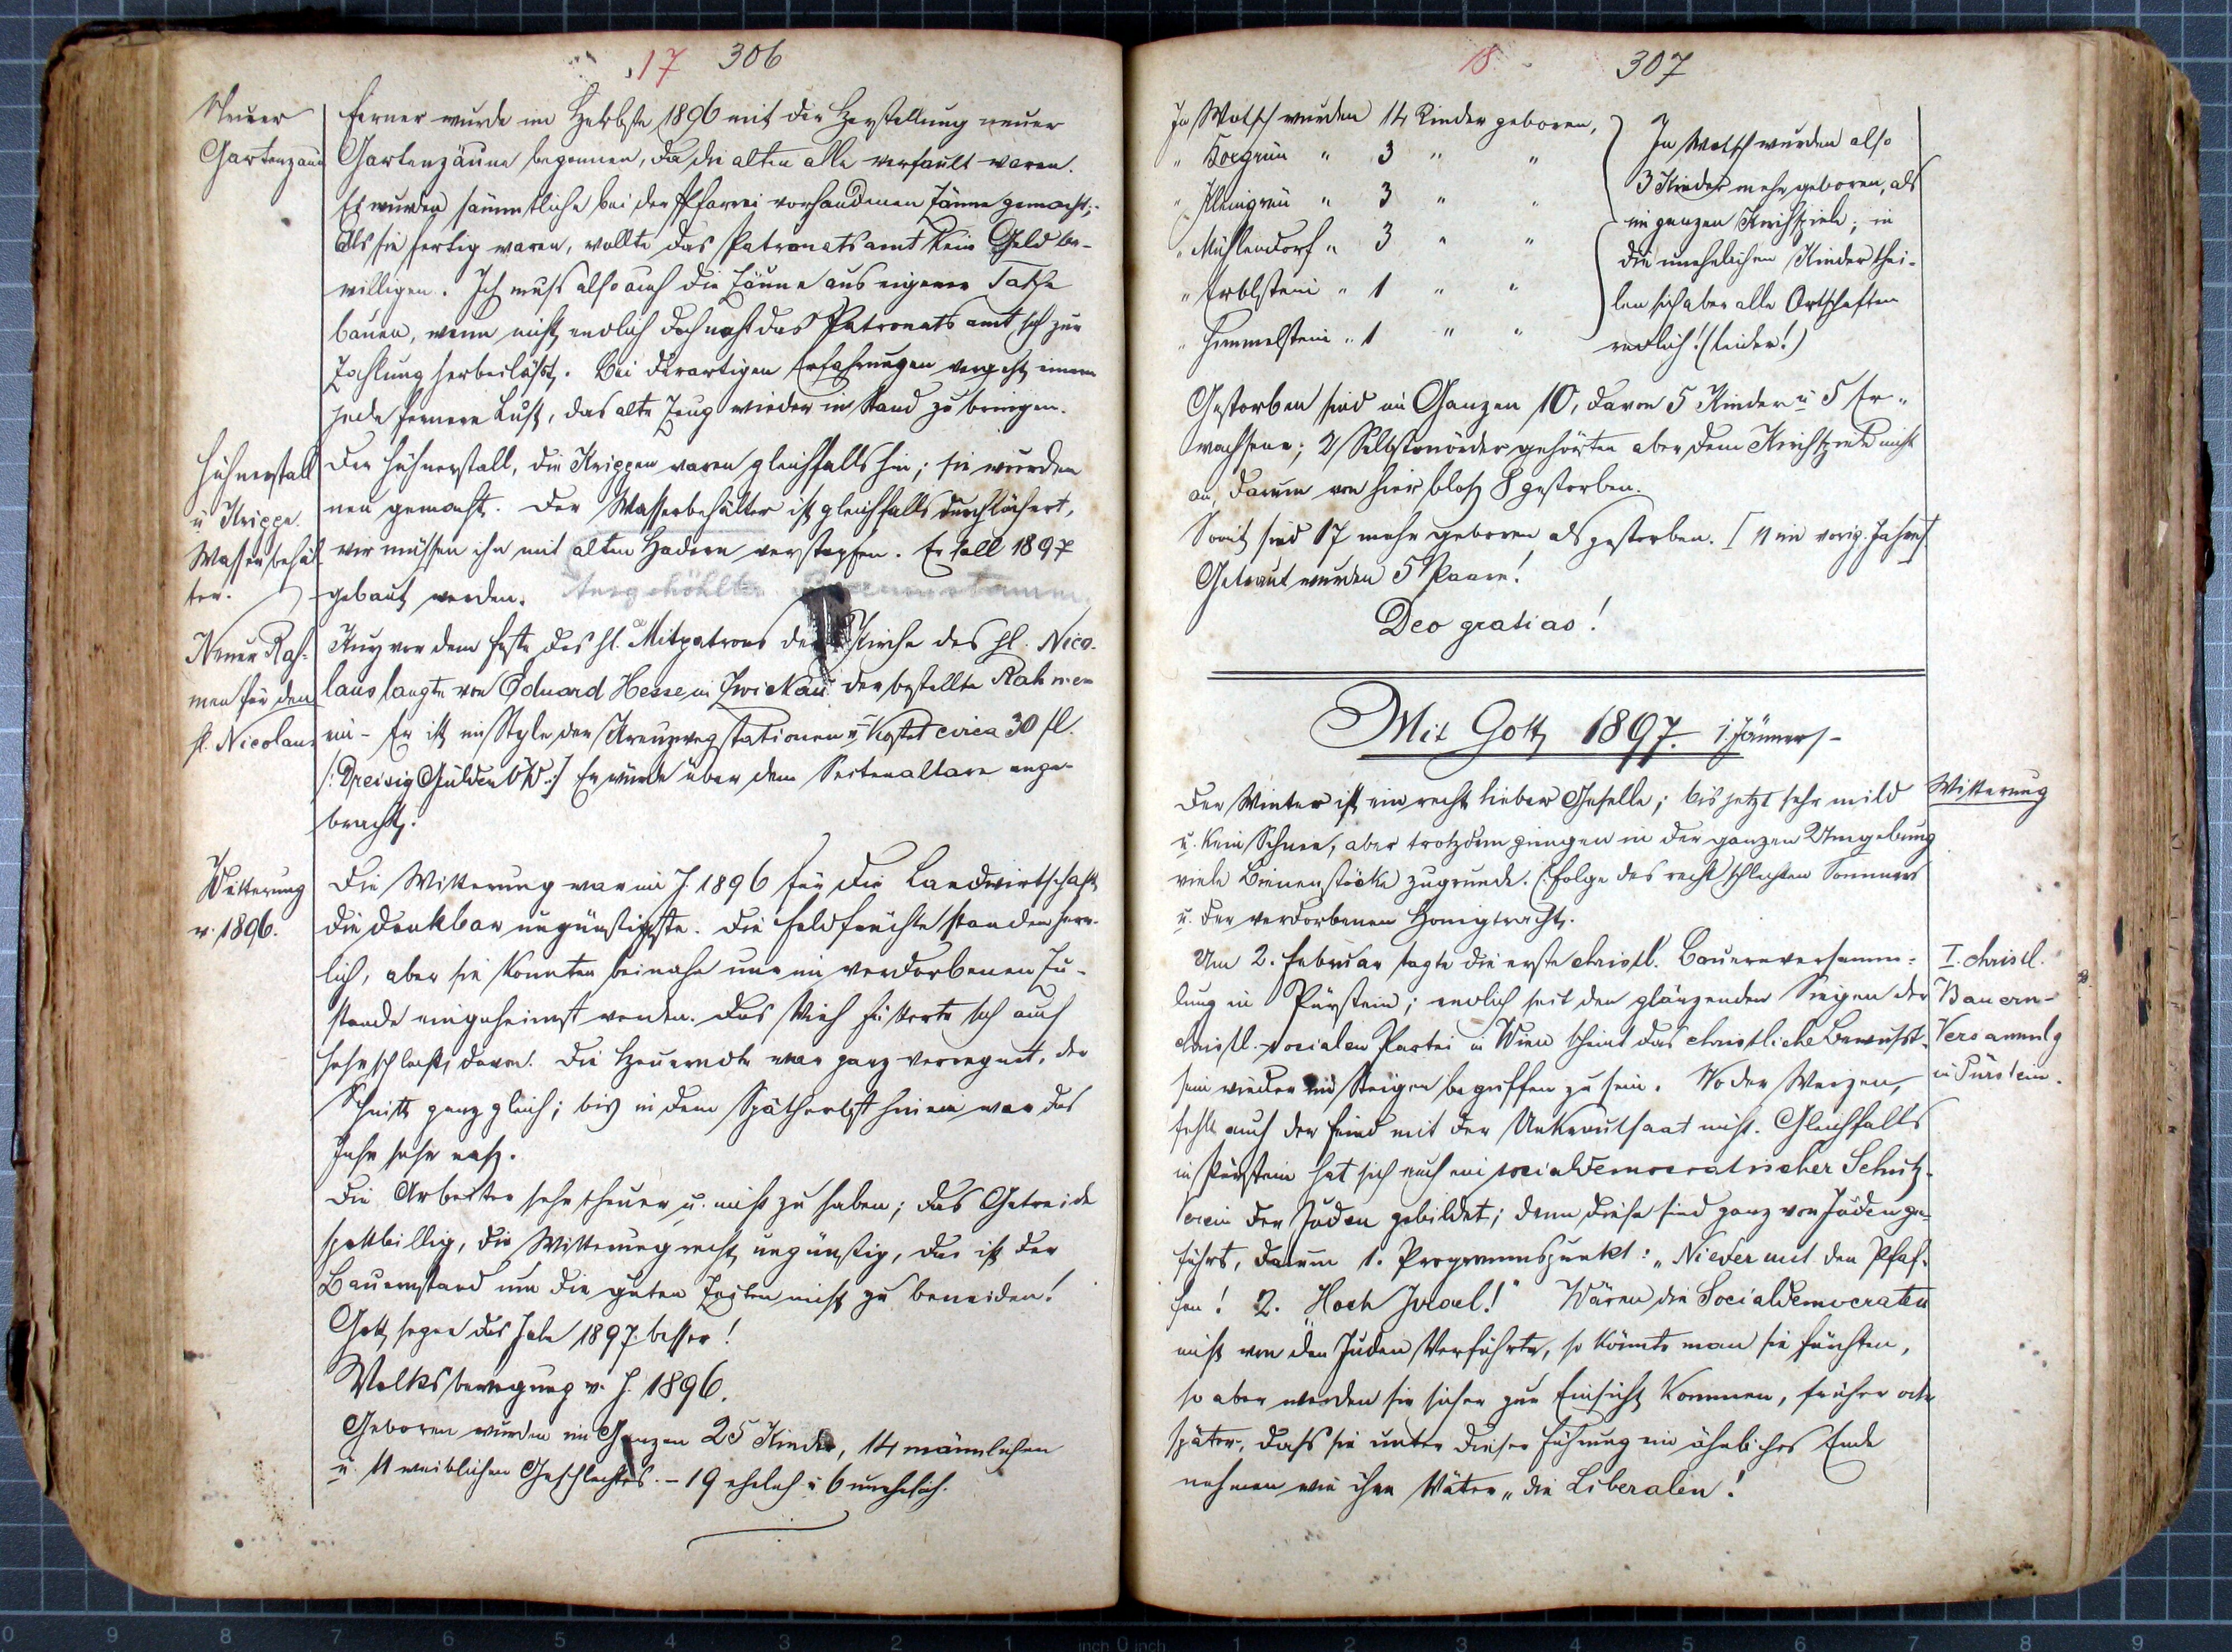 17 306
Neuer
Gartenzaun
Ferner wurde im Herbste 1896 mit der Herstellung neuer
Gartenzäune begonnen, da die alten alle verfault waren.
Es wurden sämmtliche bei der Pfarrei vorhandenen Zäune gemacht;
Als sie fertig waren, wollte das Patronatsamt kein Geld be-
willigen. Ich muß also auch die Zäune aus eigener Tasche
bauen, wenn nicht endlich doch noch das Patronatsamt sich zur
Zahlung herbeiläßt. Bei derartigen Erfahrungen vergeht einem
jede fernere Lust, das alte Zeug wieder in Stand zu bringen.
Hühnerstall
u Krippe.
Wasserbehäl-
ter.
Der Hühnerstall, die Krippen waren gleichfalls hin; sie wurden
neu gemacht. Der Wasserbehälter ist gleichfalls durchlöchert,
wir müssen ihn mit alten Hadern verstopfen. Er soll 1897
gebaut werden. Ausgehöhlter Baumstamm.
Neuer Rah-
men für den
hl. Nicolaus
Kurz vor dem Feste des hl. Mitpatrons der Kirche des hl. Nico-
laus langte von Eduard Hesse in Zwickau der bestellte Rahmen
ein - Er ist im Style der Kreuzwegstationen u kostet circa 30 fl.
/: Dreisig Gulden ÖW :/ Er wurde über dem Seitenaltare ange-
bracht.
Witterung
v. 1896.
Die Witterung war im J. 1896 für die Landwirtschaft
die denkbar ungünstigste. Die Feldfrüchte standen herr-
lich, aber sie konnten beinahe nur im verdorbenen Zu-
stande eingeheimst werden. Das Vieh fütterte sich auch
sehr schlecht davon. Die Heuernte war ganz verregnet, der
Schnitt ganz gleich; bis in dem Spätherbst hinein war das
Jahr sehr naß.
Die Arbeiter sehr theuer u. nicht zu haben; das Getreide
spottbillig, die Witterung recht ungünstig, da ist der
Bauernstand um die guten Zeiten nicht zu beneiden!
Gott segne das Jahr 1897 besser!
Volksbewegung v. J. 1896.
Geboren wurden im Ganzen 25 Kinder, 14 männlichen
u. 11 weiblichen Geschlechtes. - 19 ehelich u. 6 unehelich.
18 307
In Wotsch wurden 14 Kinder geboren,
" Korgrün " 3 " "
" Kleingrün " 3 " "
" Mühlendorf " 3 " "
" Erblstein " 1 " "
" Himmelstein " 1 " "
In Wotsch wurden also
3 Kinder mehr geboren, als
im ganzen Kirchspiele; in
die unehelichen Kinder thei-
len sich aber alle Ortschaften
redlich! (leider!)
Gestorben sind im Ganzen 10, davon 5 Kinder u 5 Er-
wachsene; 2 Selbstmörder gehörten aber dem Kirchspiele nicht
an, darum von hier blos 8 gestorben.
Somit sind 17 mehr geboren als gestorben. [11 im vorig. Jahre]
Getraut wurden 5 Paare!
Deo gratias!
Mit Gott 1897. 1. Jänner/-
Witterung
Der Winter ist ein recht lieber Geselle; bis jetzt sehr mild
u. kein Schnee, aber trotzdem gingen in der ganzen Umgebung
viele Bienenstöcke zugrunde. (Folge des recht schlechten Sommers
u. der verdorbenen Honigtracht.
I. christl.
Bauern-
Versammlg
in Pürstein.
Am 2. Februar tagte die erste christl. Bauernversamm-
lung in Pürstein; endlich seit den glänzenden Siegen der
christl.-socialen Partei in Wien scheint das christliche Bewußt-
sein wieder im Steigen begriffen zu sein. Wo der Weizen,
fehlt auch der Feind mit der Unkrautsaat nicht. Gleichfalls
in Pürstein hat sich auch ein socialdemocratischer Schutz-
verein der Juden gebildet; denn diese sind ganz von Juden ge-
führt, darum 1. Programmspunkt: "Nieder mit den Pfaf-
fen! 2. Hoch Israel!" Wären die Socialdemocraten
nicht von den Juden Verführte, so könnte man sie fürchten,
so aber werden sie sicher zur Einsicht kommen, früher oder
später, daß sie unter dieser Führung ein ähnliches Ende
nehmen wie ihre Väter "die Liberalen!